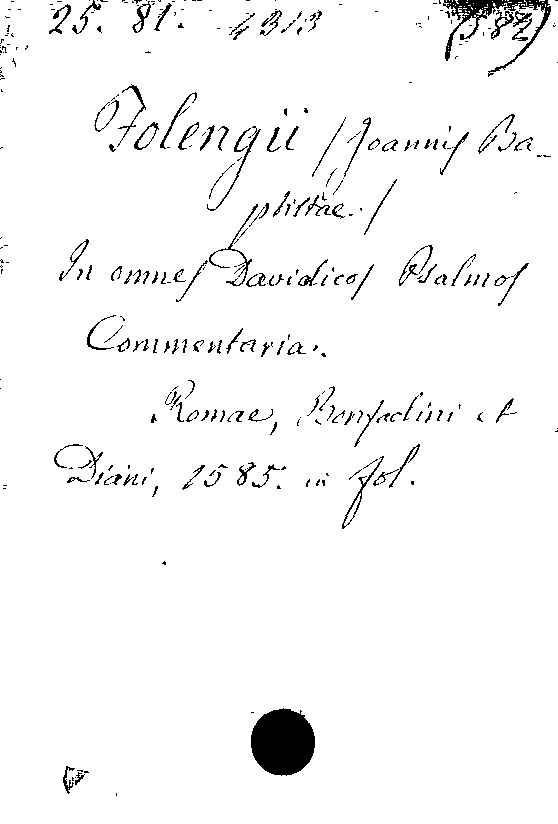 25. 81. 4313 (382)
Folengii /Joannis Ba-
ptistae./
In omnes Davidicos Psalmos
Commentaria.
Romae, Bonfadini et
Diani, 1585. in fol.